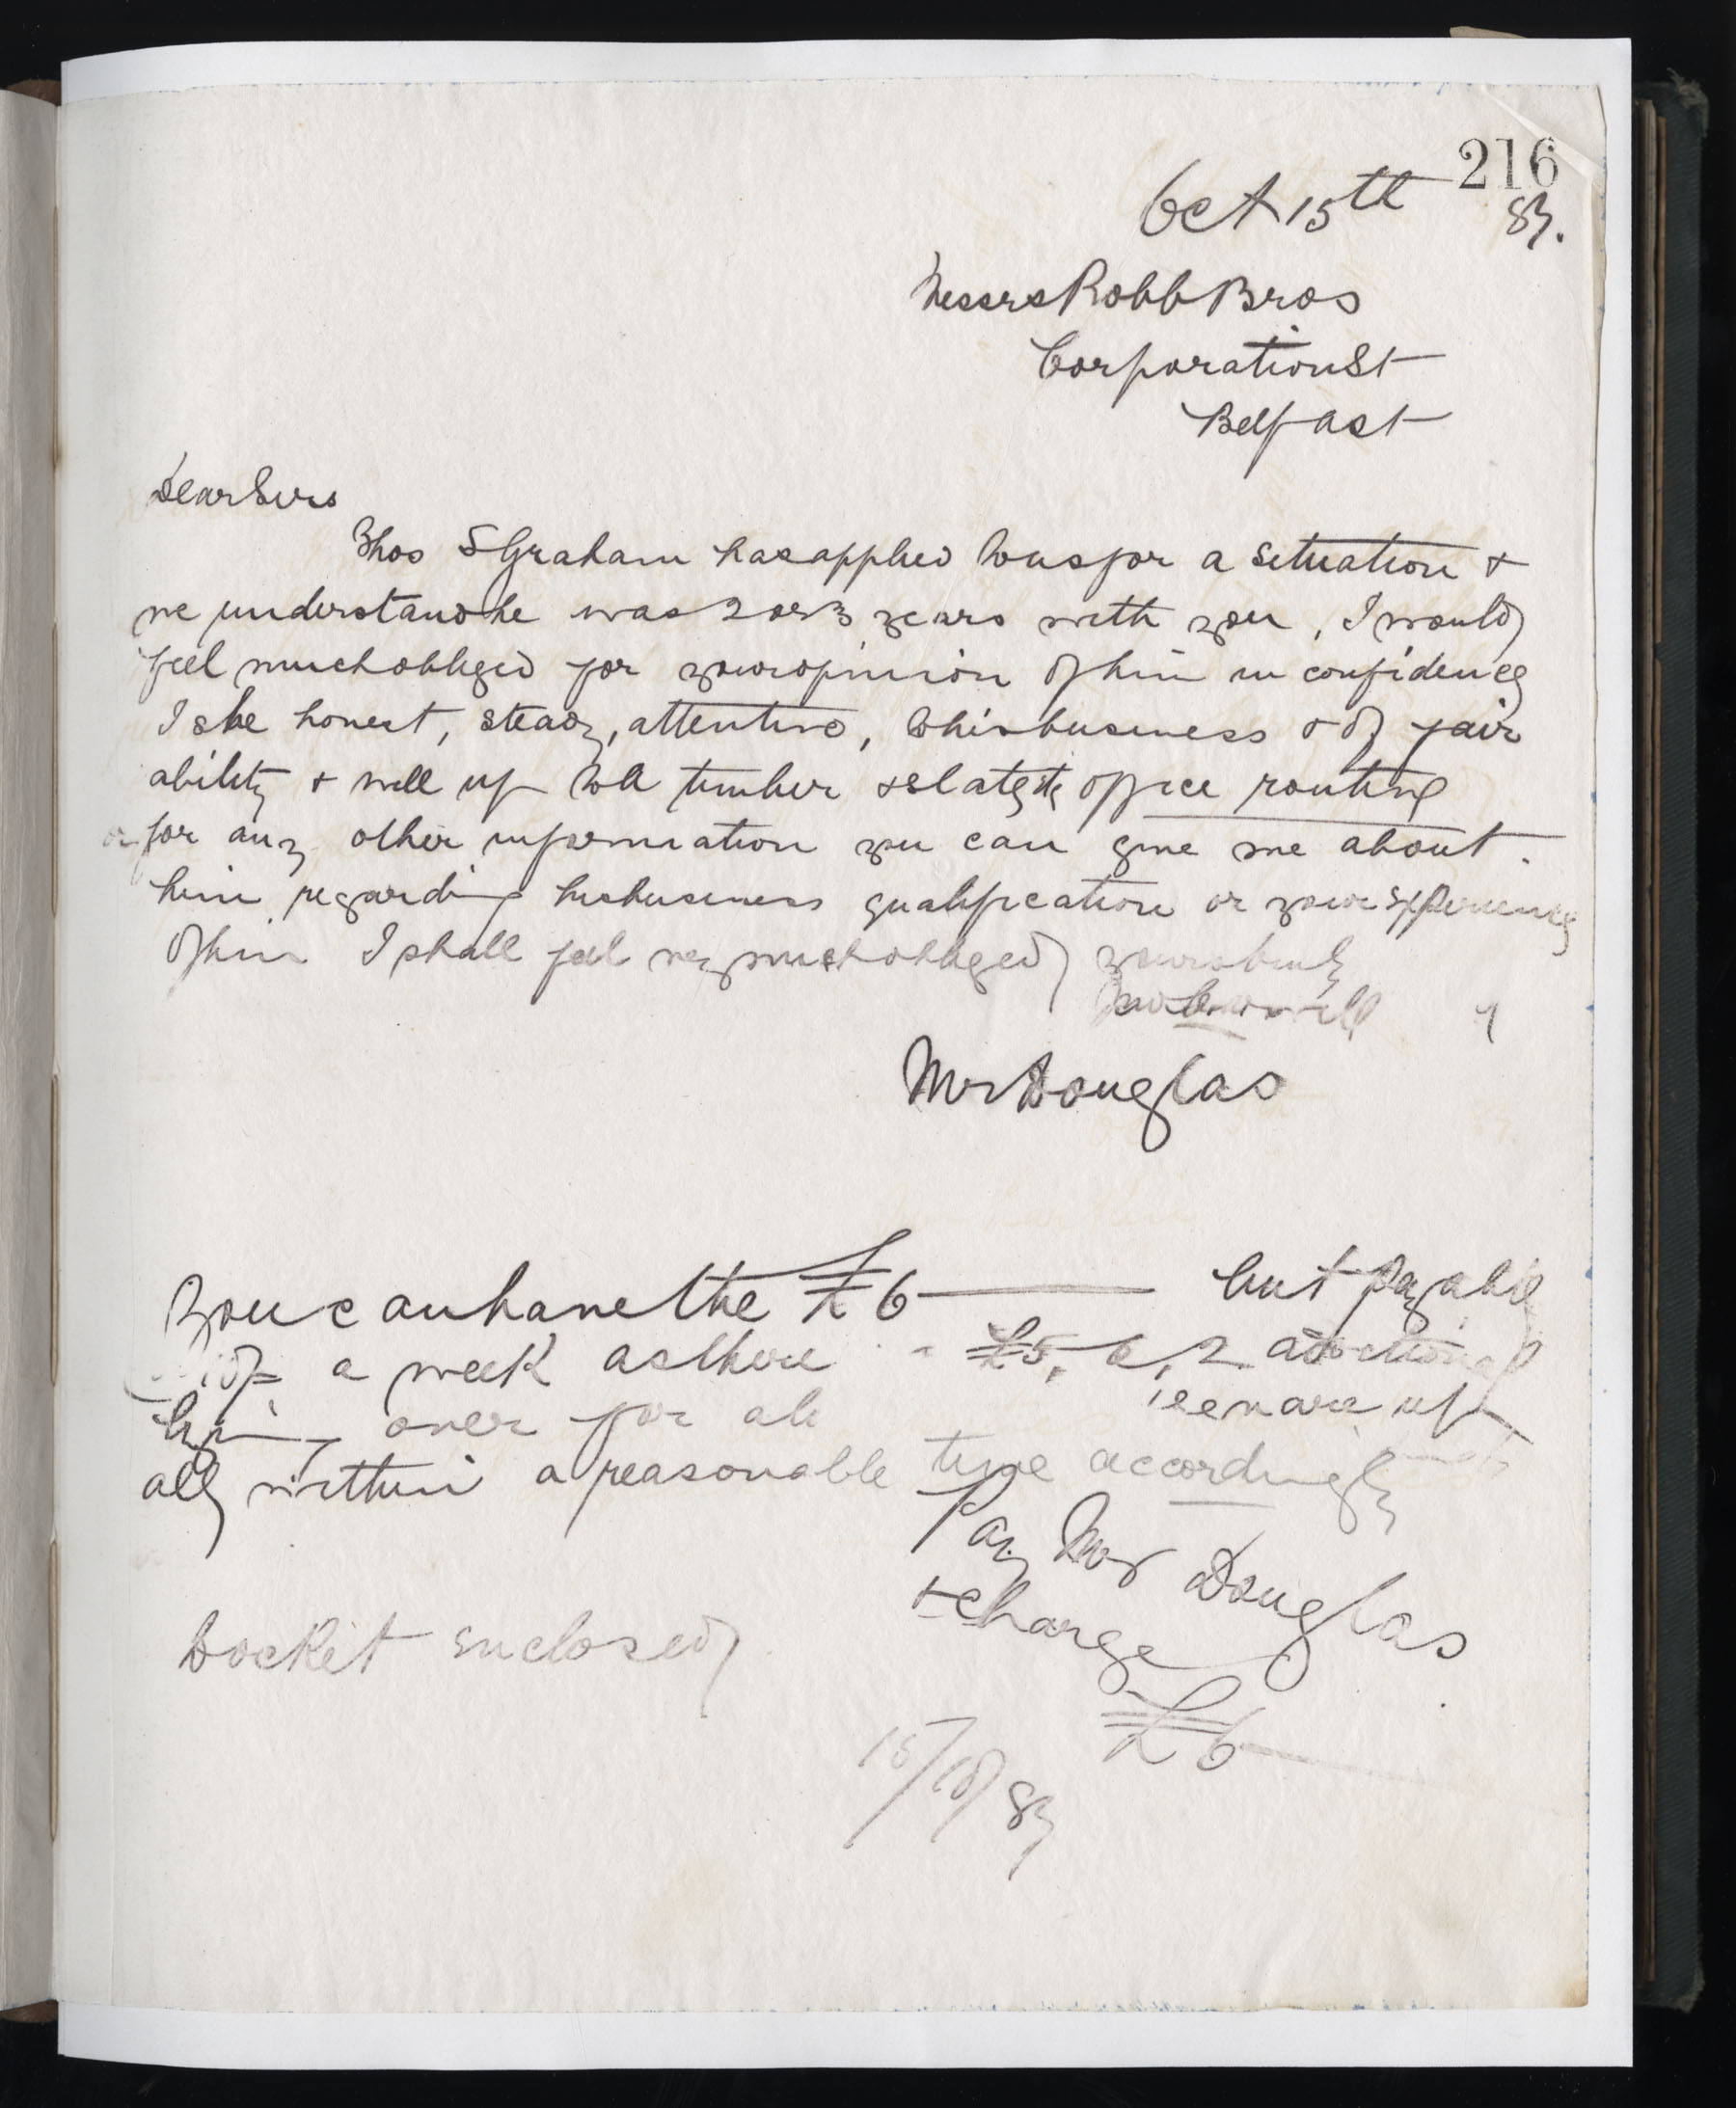 216
Oct 15th 83.
Messrs Robb Bros
Corporation St
Belfast
Dear Sirs
Thos S Graham has applied to us for a situation &
we understand he was 2 or 3 years with you, I would
feel much obliged for your opinion of him in confidence
Is he honest, steady, attentive, to his business & of fair
ability & well up to the timber & slate office routine
or for any other information you can give me about
him regarding his business qualification or your experience
of him I shall feel very much obliged yours truly
Mr Douglas
You can have the £6 but payable
10/= a week as there £5, 6, 2 additional
over for all
all within a reasonable time accordingly
Pay Mr Douglas
& charge
£6
Docket enclosed
15/10/83